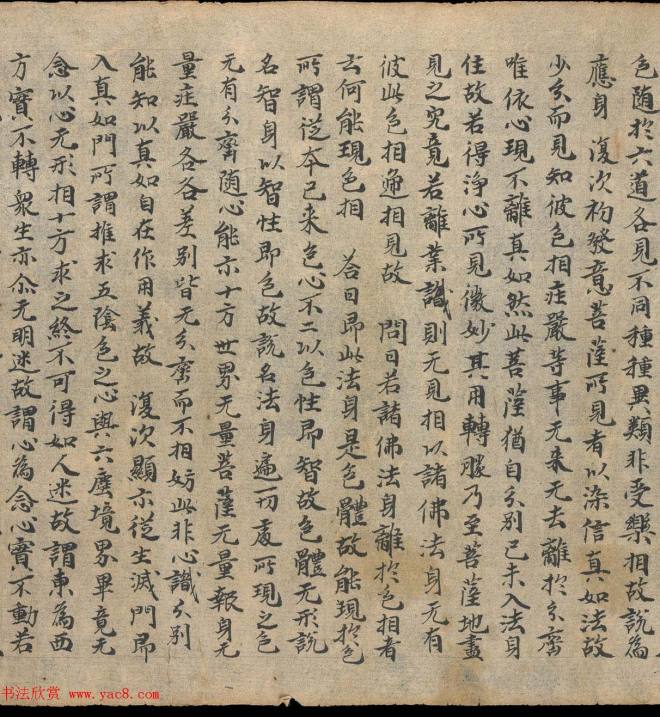 色随於六道各見不同種種異類非受樂相故說為
應身 復次初發意菩薩所見者以染信真如法故
少分而見知彼色相莊嚴等事无来无去離於分齊
唯依心現不離真如然此菩薩猶自分別已未入法身
位故若得淨心所見微妙其用轉勝乃至菩薩地盡
見之究竟若離業識則无見相以諸佛法身无有
彼此色相遞相見故 問曰若諸佛法身離於色相者
云何能現色相 答曰即此法身是色體故能現於色
所謂從本已来色心不二以色性即智故色體无形說
名智身以智性即色故說名法身遍一切處所現之色
无有分齊随心能示十方世界无量菩薩无量報身无
量莊嚴各各差別皆无分齊而不相妨此非心識分別
能知以真如自在作用義故 復次顯示從生滅門即
入真如門所謂推求五陰色之心與六塵境界畢竟无
念以心无形相十方求之終不可得如人迷故謂東為西
方實不轉衆生亦尒无明迷故謂心為念心實不動若
书法欣赏 www.yac8.com